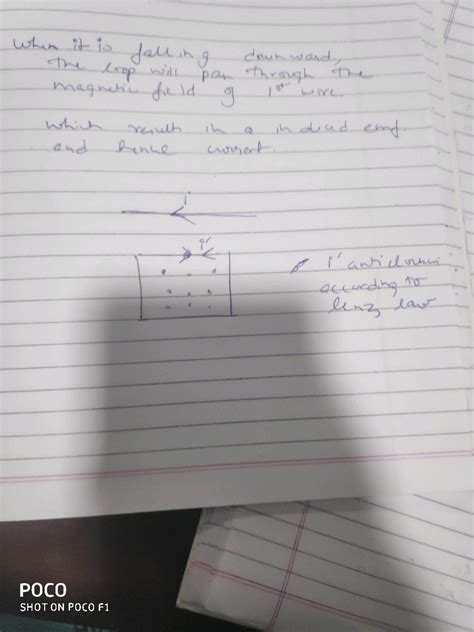 When it is falling downward,
the loop will pass through the
magnetic field of 1st wire.
which result in a induced emf
and hence current.
i
i'
i' anticlockwise
according to
lenz law
POCO
SHOT ON POCO F1